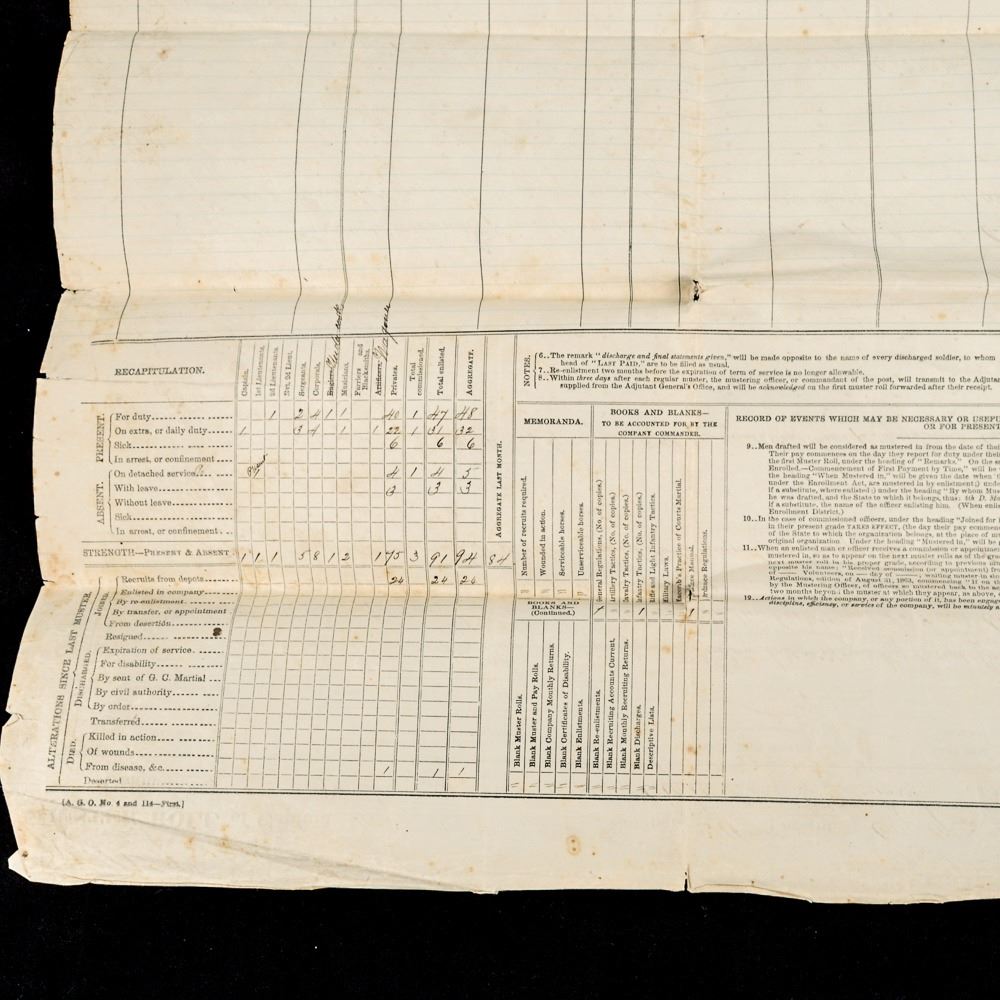 RECAPITULATION.
Captain.
1st Lieutenants.
2d Lieutenants.
Sergeants.
Corporals.
Musicians.
Farriers and Blacksmiths.
Artificers.
Wagoner
Privates.
Total commissioned.
Total enlisted.
AGGREGATE.
AGGREGATE LAST MONTH.
PRESENT.
For duty 1 2 4 1 1 40 1 47 48
On extra, or daily duty 1 3 4 1 1 22 1 31 32
Sick 6 6 6
In arrest, or confinement
ABSENT.
On detached service 4 1 4 5
With leave 3 3 3
Without leave
Sick
In arrest, or confinement
STRENGTH—PRESENT & ABSENT 1 1 1 5 8 1 2 1 75 3 91 94 84
ALTERATIONS SINCE LAST MUSTER.
JOINED.
Recruits from depots 24 24 24
Enlisted in company
By re-enlistment
By transfer, or appointment
From desertion
Resigned
DISCHARGED.
Expiration of service
For disability
By sent of G. C. Martial
By civil authority
By order
Transferred
DIED.
Killed in action
Of wounds
From disease, &c. 1 1 1
Deserted
[A. G. O. No. 4 and 114—First.]
NOTES.
6..The remark "discharge and final statements given," will be made opposite to the name of every discharged soldier, to whom
head of "LAST PAID," are to be filled as usual.
7..Re-enlistment two months before the expiration of term of service is no longer allowable.
8..Within three days after each regular muster, the mustering officer, or commandant of the post, will transmit to the Adjutan
supplied from the Adjutant General's Office, and will be acknowledged on the first muster roll forwarded after their receipt.
MEMORANDA.
Number of recruits required.
Wounded in action.
Serviceable horses.
Unserviceable horses.
BOOKS AND BLANKS—
TO BE ACCOUNTED FOR BY THE
COMPANY COMMANDER.
General Regulations, (No. of copies.)
Artillery Tactics, (No. of copies.)
Cavalry Tactics, (No. of copies.)
Infantry Tactics, (No. of copies.) 1
Rifle and Light Infantry Tactics.
Military Laws.
Practice of Courts Martial.
Manual. 1
Ordnance Regulations.
BOOKS AND
BLANKS—
(Continued.)
Blank Muster Rolls.
Blank Muster and Pay Rolls.
Blank Company Monthly Returns.
Blank Certificates of Disability.
Blank Enlistments.
Blank Re-enlistments.
Blank Recruiting Accounts Current.
Blank Monthly Recruiting Returns.
Blank Discharges.
Descriptive Lists.
RECORD OF EVENTS WHICH MAY BE NECESSARY OR USEF
OR FOR PRESENT
9..Men drafted will be considered as mustered in from the date of thei
Their pay commences on the day they report for duty under thei
the first Muster Roll, under the heading of "Remarks." On the s
Enrolled.—Commencement of First Payment by Time," will be
the heading "When Mustered in," will be given the date when t
under the Enrollment Act, are mustered in by enlistment;) unde
If a substitute, where enlisted;) under the heading "By whom Mus
he was drafted, and the State to which it belongs, thus: 4th D. Ma
If a substitute, the name of the officer enlisting him. (When enlis
Enrollment District.)
10..In the case of commissioned officers, under the heading "Joined for
in their present grade TAKES EFFECT, (the day their pay commen
of the State to which the organization belongs, at the place of mu
original organization. Under the heading "Mustered in," will be
11..When an enlisted man or officer receives a commission or appointmen
mustered in, so as to appear on the next muster rolls as of the
next muster roll in his proper grade, according to previous
opposite his name: "Received commission (or appointment)
of —— Volunteers, on —— of ——; waiting muster in
Regulations, edition of August 31, 1863, commencing "
by the Mustering Officer, of officers so mustered back to the
two months beyond the muster at which they appear, as above,
12..Actions in which the company, or any portion of it, has been engag
discipline, efficiency, or service of the company, will be minutely